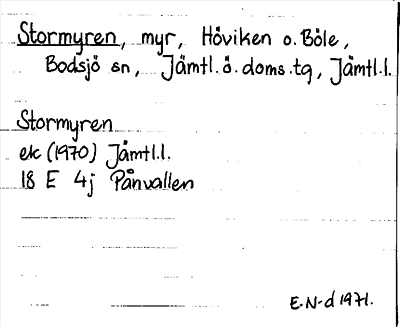 Stormyren, myr, Höviken o. Böle,
Bodsjö sn, Jämtl. ö. doms. tg, Jämtl. l.
Stormyren
ek (1970) Jämtl. l.
18 E 4j Pånvallen
E. N-d 1971.